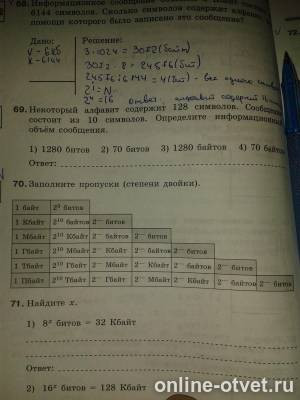 68. Информационное сообщение
6144 символов. Сколько символов содержит
помощи которого было записано это сообщение?
72.
Дано:
Решение:
3·1024 = 3072 (байт)
3072 · 8 = 24576 (бит)
24576 : 6144 = 4 (бит) - вес одного
2^i = N
2^4 = 16 ответ. алфавит содержит 16
69. Некоторый алфавит содержит 128 символов. Сообщение
состоит из 10 символов. Определите информационный
объём сообщения.
1) 1280 битов 2) 70 битов 3) 1280 байтов 4) 70 байтов
Ответ:
70. Заполните пропуски (степени двойки).
1 байт 2³ битов
1 Кбайт 2¹⁰ байтов 2— битов
1 Мбайт 2¹⁰ Кбайт 2— байтов 2— битов
1 Гбайт 2¹⁰ Мбайт 2— Кбайт 2— байтов 2— битов
1 Тбайт 2¹⁰ Гбайт 2— Мбайт 2— Кбайт 2— байтов 2— битов
1 Пбайт 2¹⁰ Тбайт 2— Гбайт 2— Мбайт 2— Кбайт 2— байтов 2— битов
71. Найдите x.
1) 8ˣ битов = 32 Кбайт
Ответ:
2) 16ˣ битов = 128 Кбайт
online-otvet.ru